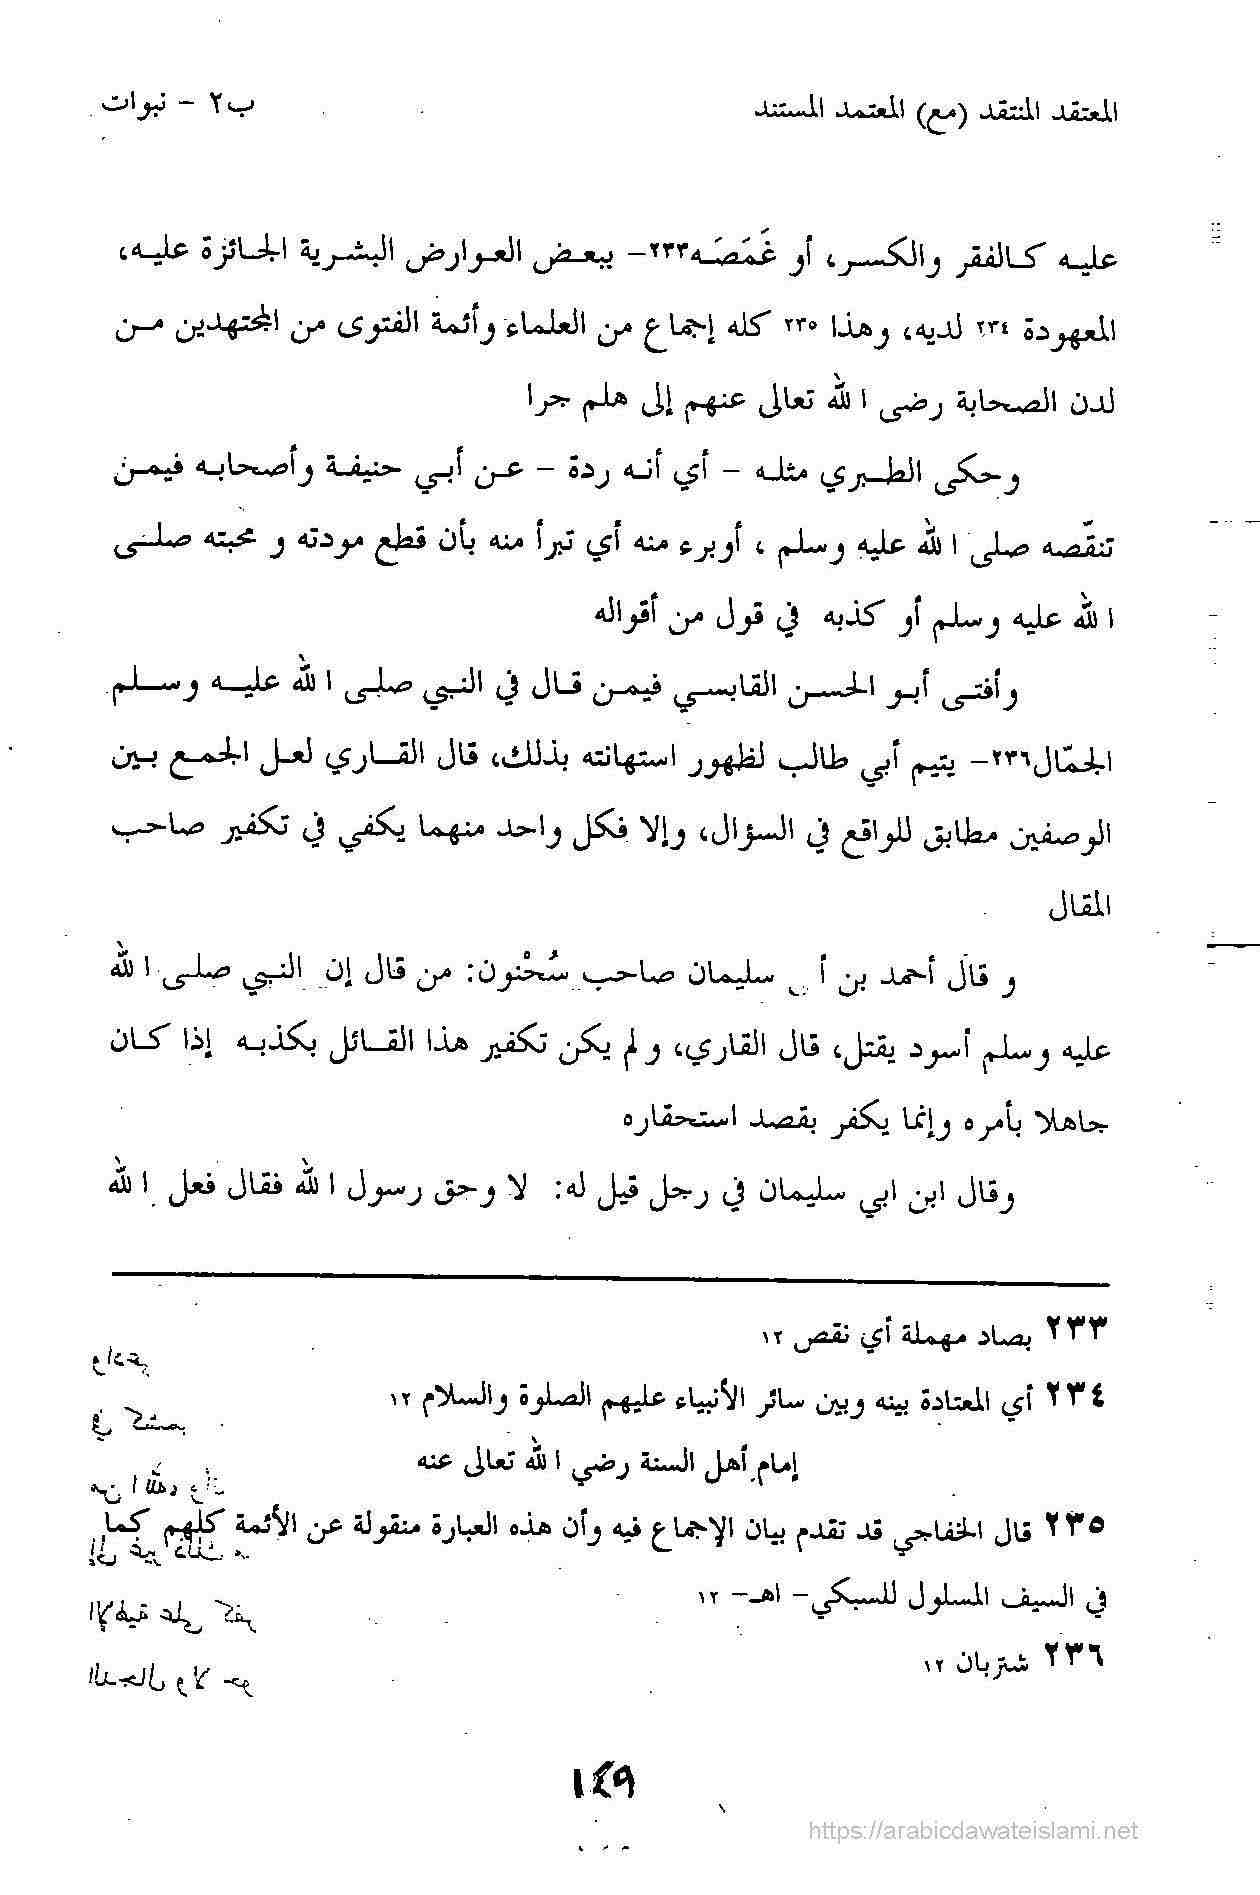 المعتقد المنتقد (مع) المعتمد المستند
ب٢ - نبوات
عليه كالفقر والكسر، أو غَمَصَه٢٣٣- ببعض العوارض البشرية الجائزة عليه،
المعهودة ٢٣٤ لديه، وهذا ٢٣٥ كله إجماع من العلماء وأئمة الفتوى من المجتهدين من
لدن الصحابة رضى الله تعالى عنهم إلى هلم جرا
وحكى الطبري مثله - أي أنه ردة - عن أبي حنيفة وأصحابه فيمن
تنقّصه صلى الله عليه وسلم ، أوبرء منه أي تبرأ منه بأن قطع مودته و محبته صلى
الله عليه وسلم أو كذبه في قول من أقواله
وأفتى أبو الحسن القابسي فيمن قال في النبي صلى الله عليه وسلم
الجمّال٢٣٦- يتيم أبي طالب لظهور استهانته بذلك، قال القاري لعل الجمع بين
الوصفين مطابق للواقع في السؤال، وإلا فكل واحد منهما يكفي في تكفير صاحب
المقال
و قال أحمد بن أ سليمان صاحب سُحْنون: من قال إن النبي صلى الله
عليه وسلم أسود يقتل، قال القاري، و لم يكن تكفير هذا القائل بكذبه إذا كان
جاهلا بأمره وإنما يكفر بقصد استحقاره
وقال ابن ابي سليمان في رجل قيل له: لا وحق رسول الله فقال فعل الله
٢٣٣ بصاد مهملة أي نقص ١٢
٢٣٤ أي المعتادة بينه وبين سائر الأنبياء عليهم الصلوة والسلام ١٢
إمام أهل السنة رضي الله تعالى عنه
٢٣٥ قال الخفاجي قد تقدم بيان الإجماع فيه وأن هذه العبارة منقولة عن الأئمة كلهم كما
في السيف المسلول للسبكي- اهـ- ١٢
٢٣٦ شتربان ١٢
١٤٩
https://arabicdawateislami.net